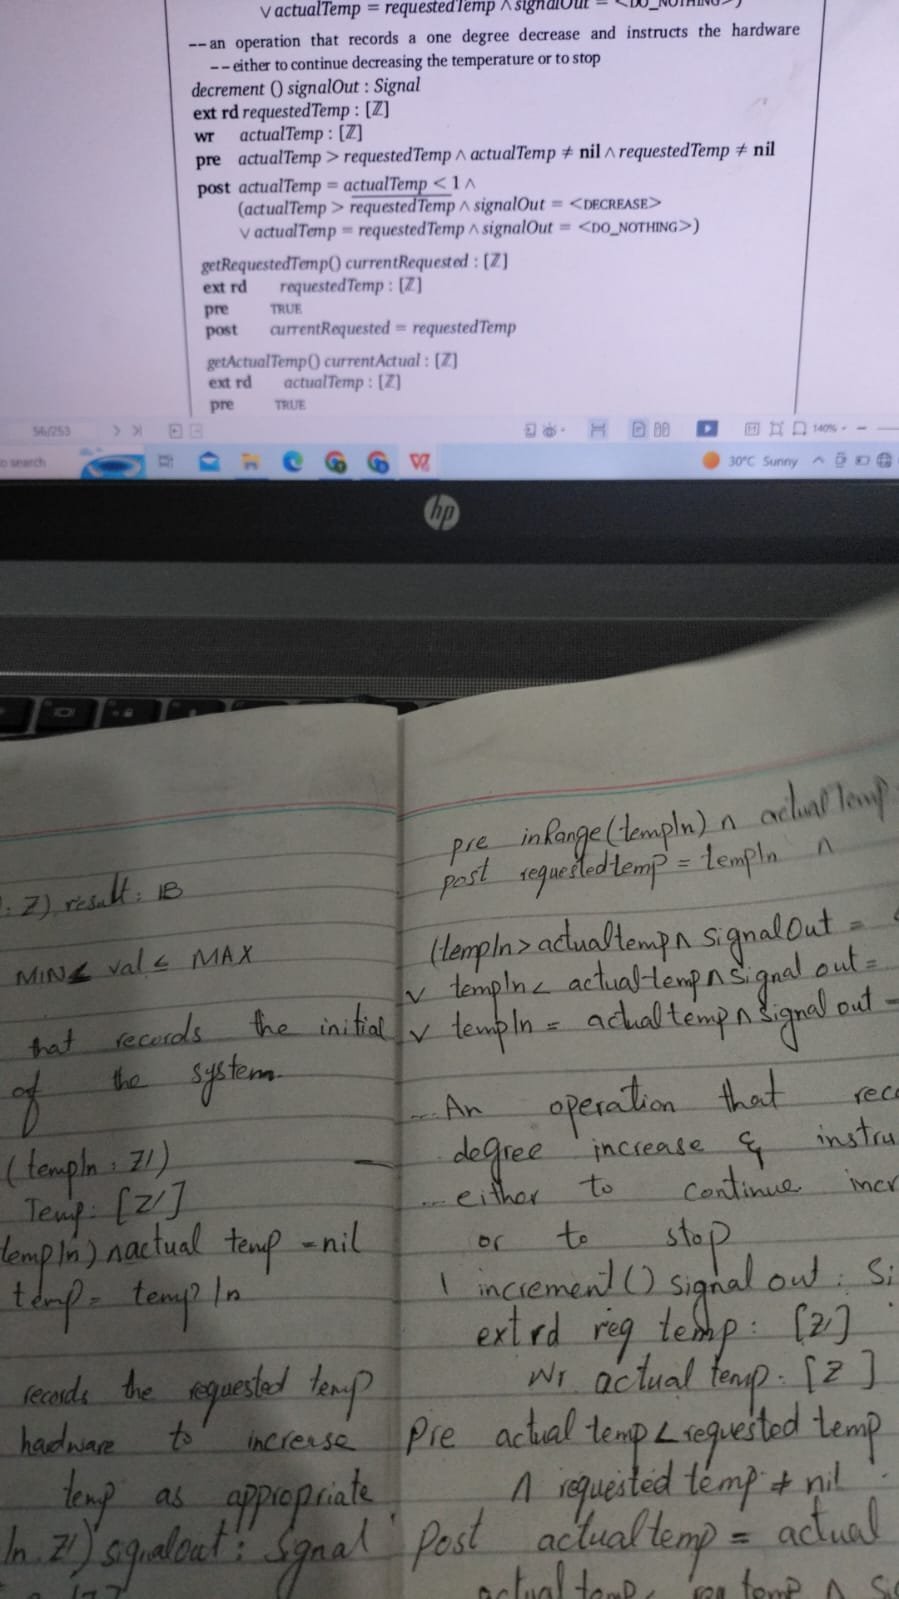 ∨ actualTemp = requestedTemp ∧ signalOut = <DO_NOTHING>)
-- an operation that records a one degree decrease and instructs the hardware
-- either to continue decreasing the temperature or to stop
decrement () signalOut : Signal
ext rd requestedTemp : [ℤ]
wr actualTemp : [ℤ]
pre actualTemp > requestedTemp ∧ actualTemp ≠ nil ∧ requestedTemp ≠ nil
post actualTemp = actualTemp < 1 ∧
(actualTemp > requestedTemp ∧ signalOut = <DECREASE>
∨ actualTemp = requestedTemp ∧ signalOut = <DO_NOTHING>)
getRequestedTemp() currentRequested : [ℤ]
ext rd requestedTemp : [ℤ]
pre TRUE
post currentRequested = requestedTemp
getActualTemp() currentActual : [ℤ]
ext rd actualTemp : [ℤ]
pre TRUE
56/253
140%
search
30°C Sunny
hp
: Z) result : IB
MIN ≤ val ≤ MAX
that records the initial
of the system.
(tempIn : Z)
Temp : [Z]
tempIn) ∧ actual temp = nil
temp = tempIn
records the requested temp
hadware to increase
temp as appropriate
In Z) signalout : Signal
pre inRange(tempIn) ∧ actualTemp
post requestedtemp = tempIn ∧
(tempIn > actualtemp ∧ signalOut =
∨ tempIn < actualtemp ∧ signal out =
∨ tempIn = actualtemp ∧ signal out =
... An operation that rec
degree increase & instru
... either to continue incr
or to stop
increment() signal out : Si
ext rd req temp : [Z]
Wr actual temp : [Z]
Pre actual temp < requested temp
∧ requested temp ≠ nil
Post actualtemp = actual